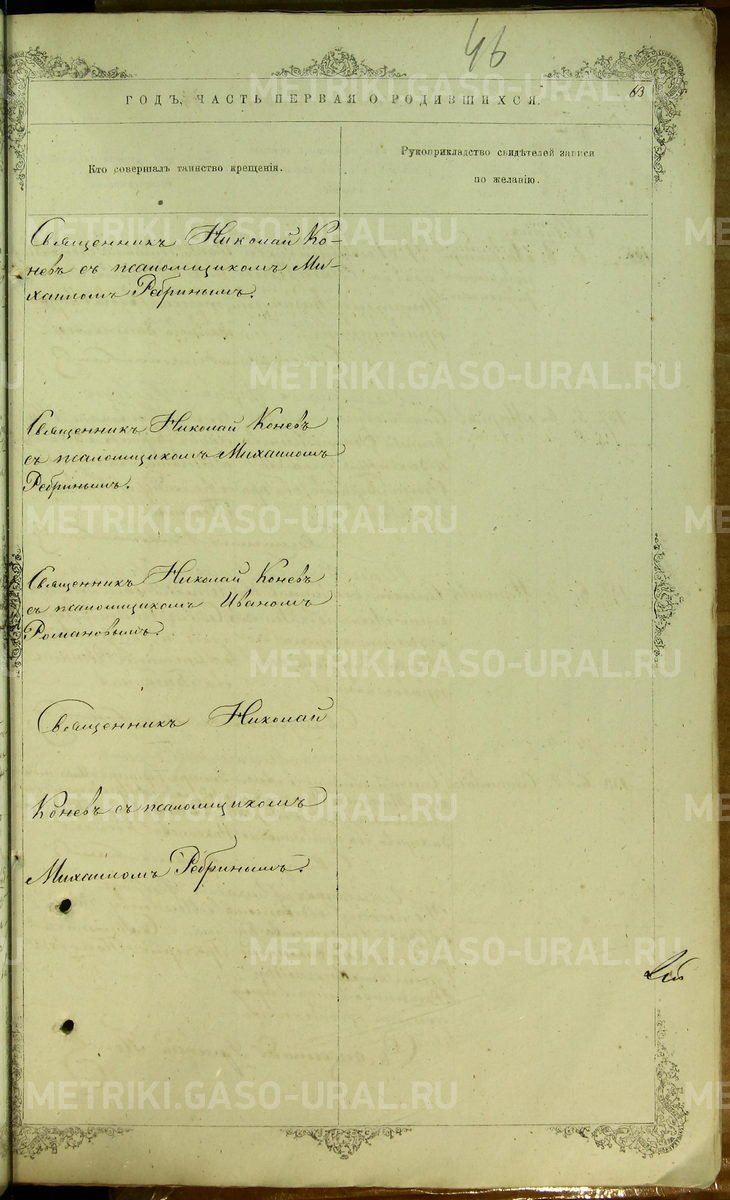 46
63
ГОДЪ, ЧАСТЬ ПЕРВАЯ О РОДИВШИХСЯ.
Кто совершалъ таинство крещенія.
Рукоприкладство свидѣтелей записи
по желанію.
Священникъ Николай Ко-
невъ съ псаломщикомъ Ми-
хаиломъ Ребринымъ.
Священникъ Николай Коневъ
съ псаломщикомъ Михаиломъ
Ребринымъ.
Священникъ Николай Коневъ
съ псаломщикомъ Иваномъ
Романовымъ.
Священникъ Николай
Коневъ съ псаломщикомъ
Михаиломъ Ребринымъ.
METRIKI.GASO-URAL.RU